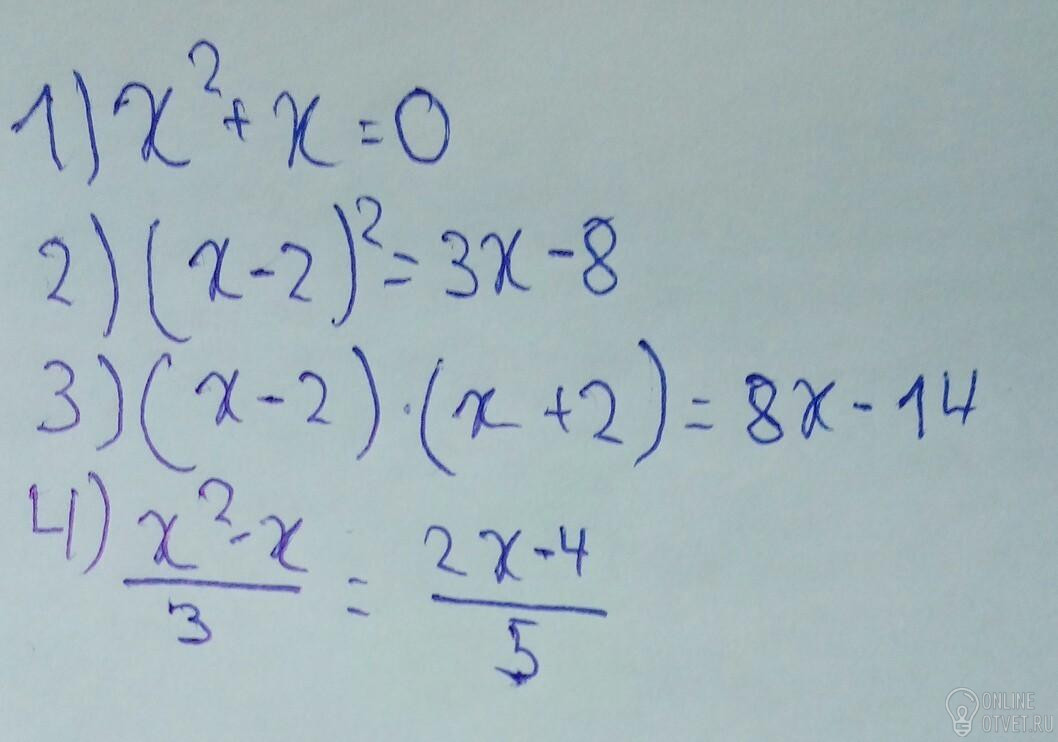 1) x² + x = 0
2) (x - 2)² = 3x - 8
3) (x - 2) · (x + 2) = 8x - 14
4) (x² - x)/3 = (2x - 4)/5
ONLINE
OTVET.RU